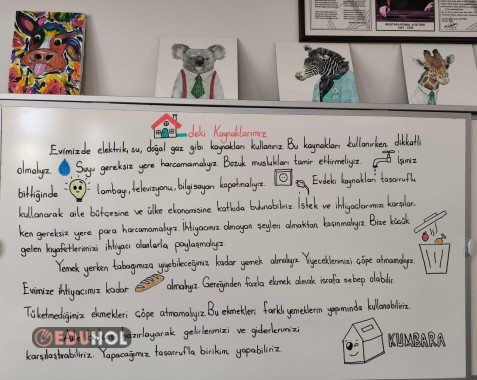 MUSTAFA KEMAL ATATÜRK
deki Kaynaklarımız
Evimizde elektrik, su, doğal gaz gibi kaynakları kullanırız. Bu kaynakları kullanırken dikkatli
olmalıyız. Suyu gereksiz yere harcamamalıyız. Bozuk muslukları tamir ettirmeliyiz. İşimiz
bittiğinde lambayı, televizyonu, bilgisayarı kapatmalıyız. Evdeki kaynakları tasarrufla
kullanarak aile bütçesine ve ülke ekonomisine katkıda bulunabiliriz. İstek ve ihtiyaclarımızı karşılar-
ken gereksiz yere para harcamamalıyız. İhtiyacımız olmayan şeyleri almaktan kaçınmalıyız. Bize küçük
gelen kıyafetlerimizi ihtiyacı olanlarla paylaşmalıyız.
Yemek yerken tabağımıza yiyebileceğimiz kadar yemek almalıyız. Yiyeceklerimizi çöpe atmamalıyız.
Evimize ihtiyacımız kadar almalıyız. Gereğinden fazla ekmek almak israfa sebep olabilir.
Tüketmediğimiz ekmekleri çöpe atmamalıyız. Bu ekmekleri farklı yemeklerin yapımında kullanabiliriz.
hazırlayarak gelirlerimizi ve giderlerimizi
karşılaştırabiliriz. Yapacağımız tasarrufla birikim yapabiliriz.
KUMBARA
EDUHOL